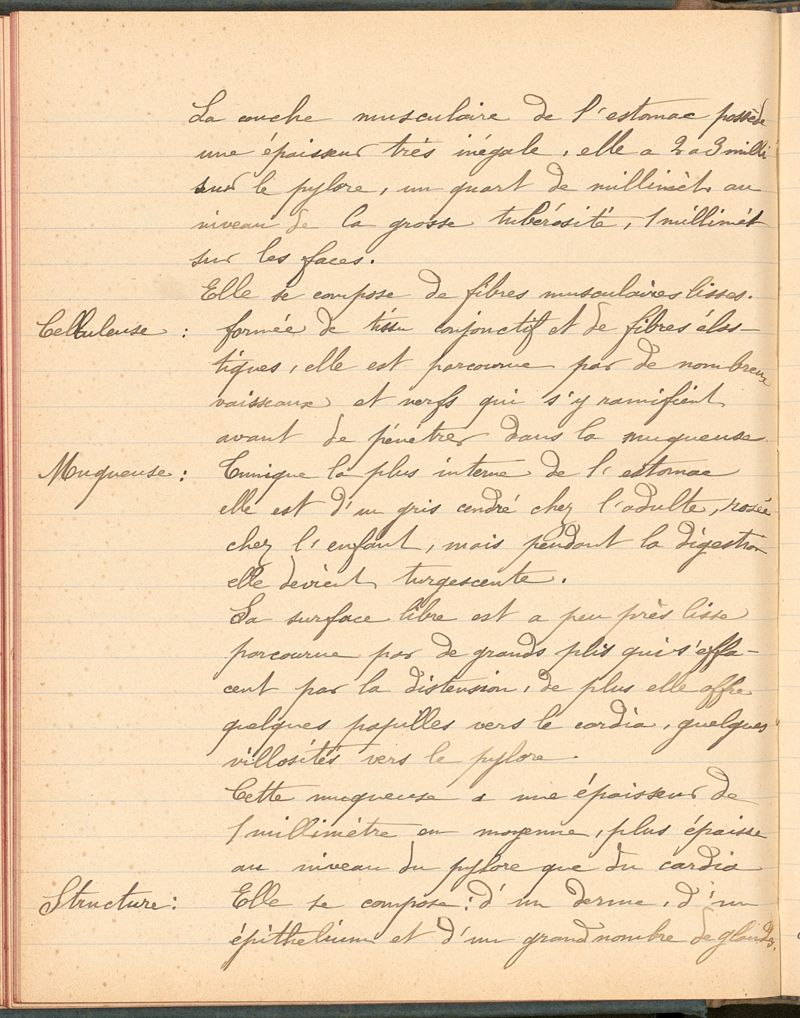 La couche musculaire de l'estomac possède
une épaisseur très inégale, elle a 2 a 3 milli
sur le pylore, un quart de millimèt. au
niveau de la grosse tubérosité, 1 millimèt
sur les faces.
Elle se compose de fibres musculaires lisses.
Celluleuse : formée de tissu conjonctif et de fibres élas-
tiques, elle est parcourue par de nombreux
vaisseaux et nerfs qui s'y ramifient
avant de pénétrer dans la muqueuse
Muqueuse : Tunique la plus interne de l'estomac
elle est d'un gris cendré chez l'adulte, rosée
chez l'enfant, mais pendant la digestion
elle devient turgescente.
Sa surface libre est a peu près lisse
parcourue par de grands plis qui s'effa-
cent par la distension, de plus elle offre
quelques papilles vers le cardia, quelques
villosités vers le pylore.
Cette muqueuse a une épaisseur de
1 millimètre en moyenne, plus épaisse
au niveau du pylore que du cardia
Structure : Elle se compose : d'un derme, d'un
épithelium et d'un grand nombre de glandes.